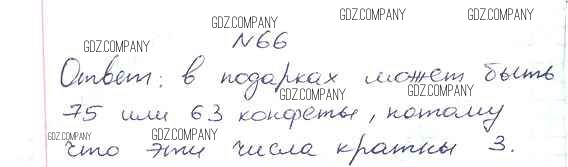 GDZ.COMPANY GDZ.COMPANY GDZ.COMPANY
N66
GDZ.COMPANY
Ответ: в подарках может быть
GDZ.COMPANY GDZ.COMPANY
75 или 63 конфеты, потому
GDZ.COMPANY GDZ.COMPANY
что эти числа кратны 3.